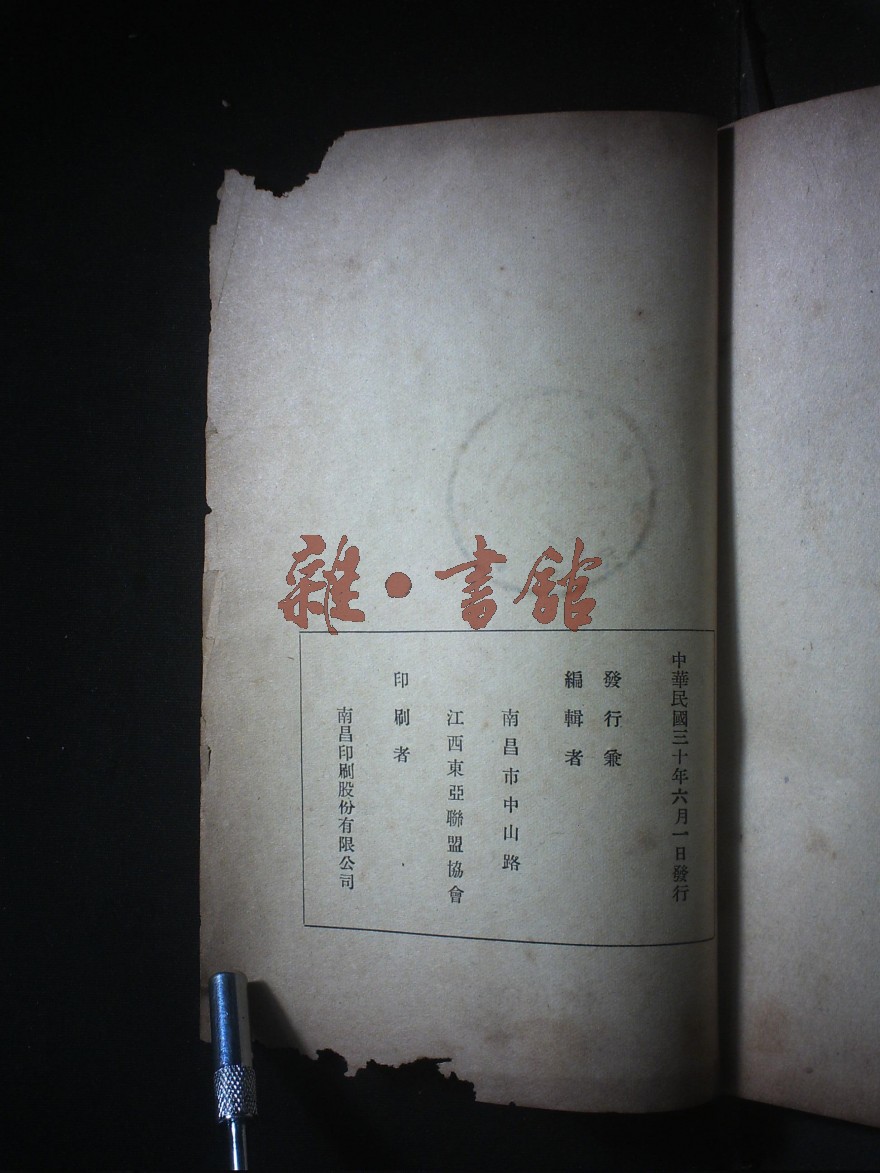 雜·書館
中華民國三十年六月一日發行
發行兼
編輯者
南昌市中山路
江西東亞聯盟協會
印刷者
南昌印刷股份有限公司